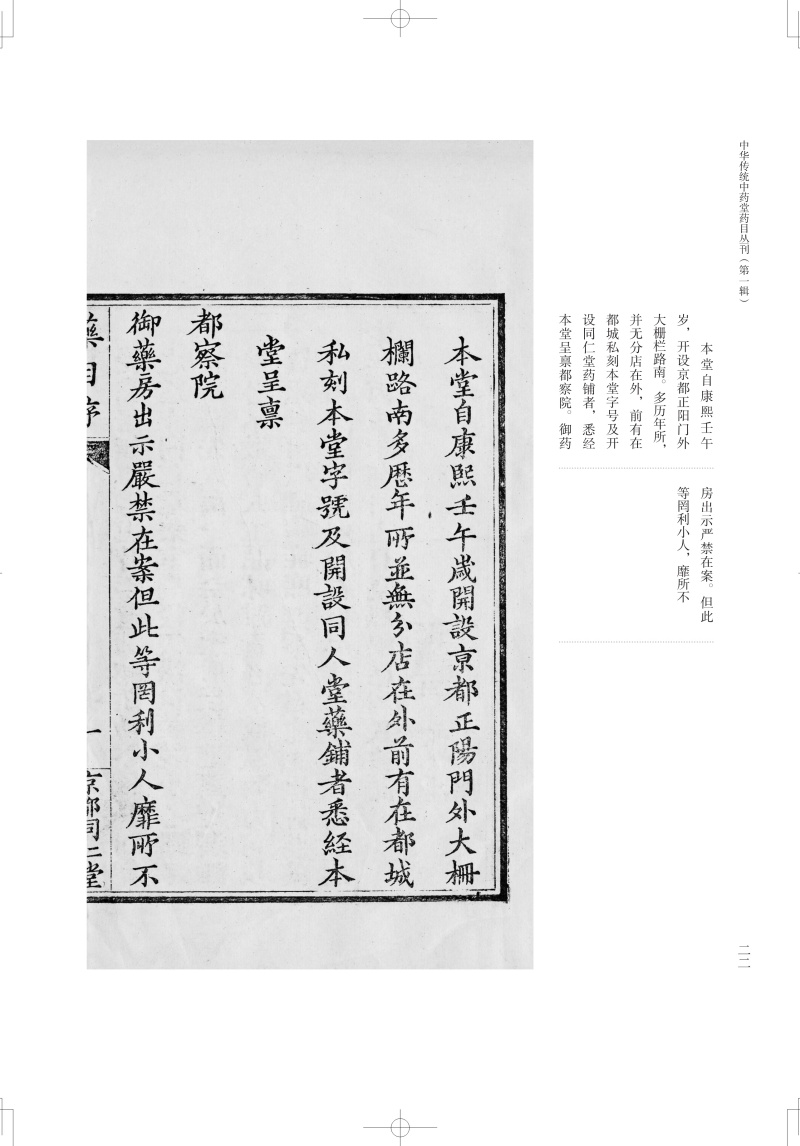 中华传统中药堂药目丛刊（第一辑）
本堂自康熙壬午
岁，开设京都正阳门外
大栅栏路南。多历年所，
并无分店在外，前有在
都城私刻本堂字号及开
设同仁堂药铺者，悉经
本堂呈禀都察院。御药
房出示严禁在案。但此
等罔利小人，靡所不
二二
本堂自康熙壬午歲開設京都正陽門外大柵
欄路南多歷年所並無分店在外前有在都城
私刻本堂字號及開設同人堂藥鋪者悉經本
堂呈禀
都察院
御藥房出示嚴禁在案但此等罔利小人靡所不
藥目序
一
京都同仁堂